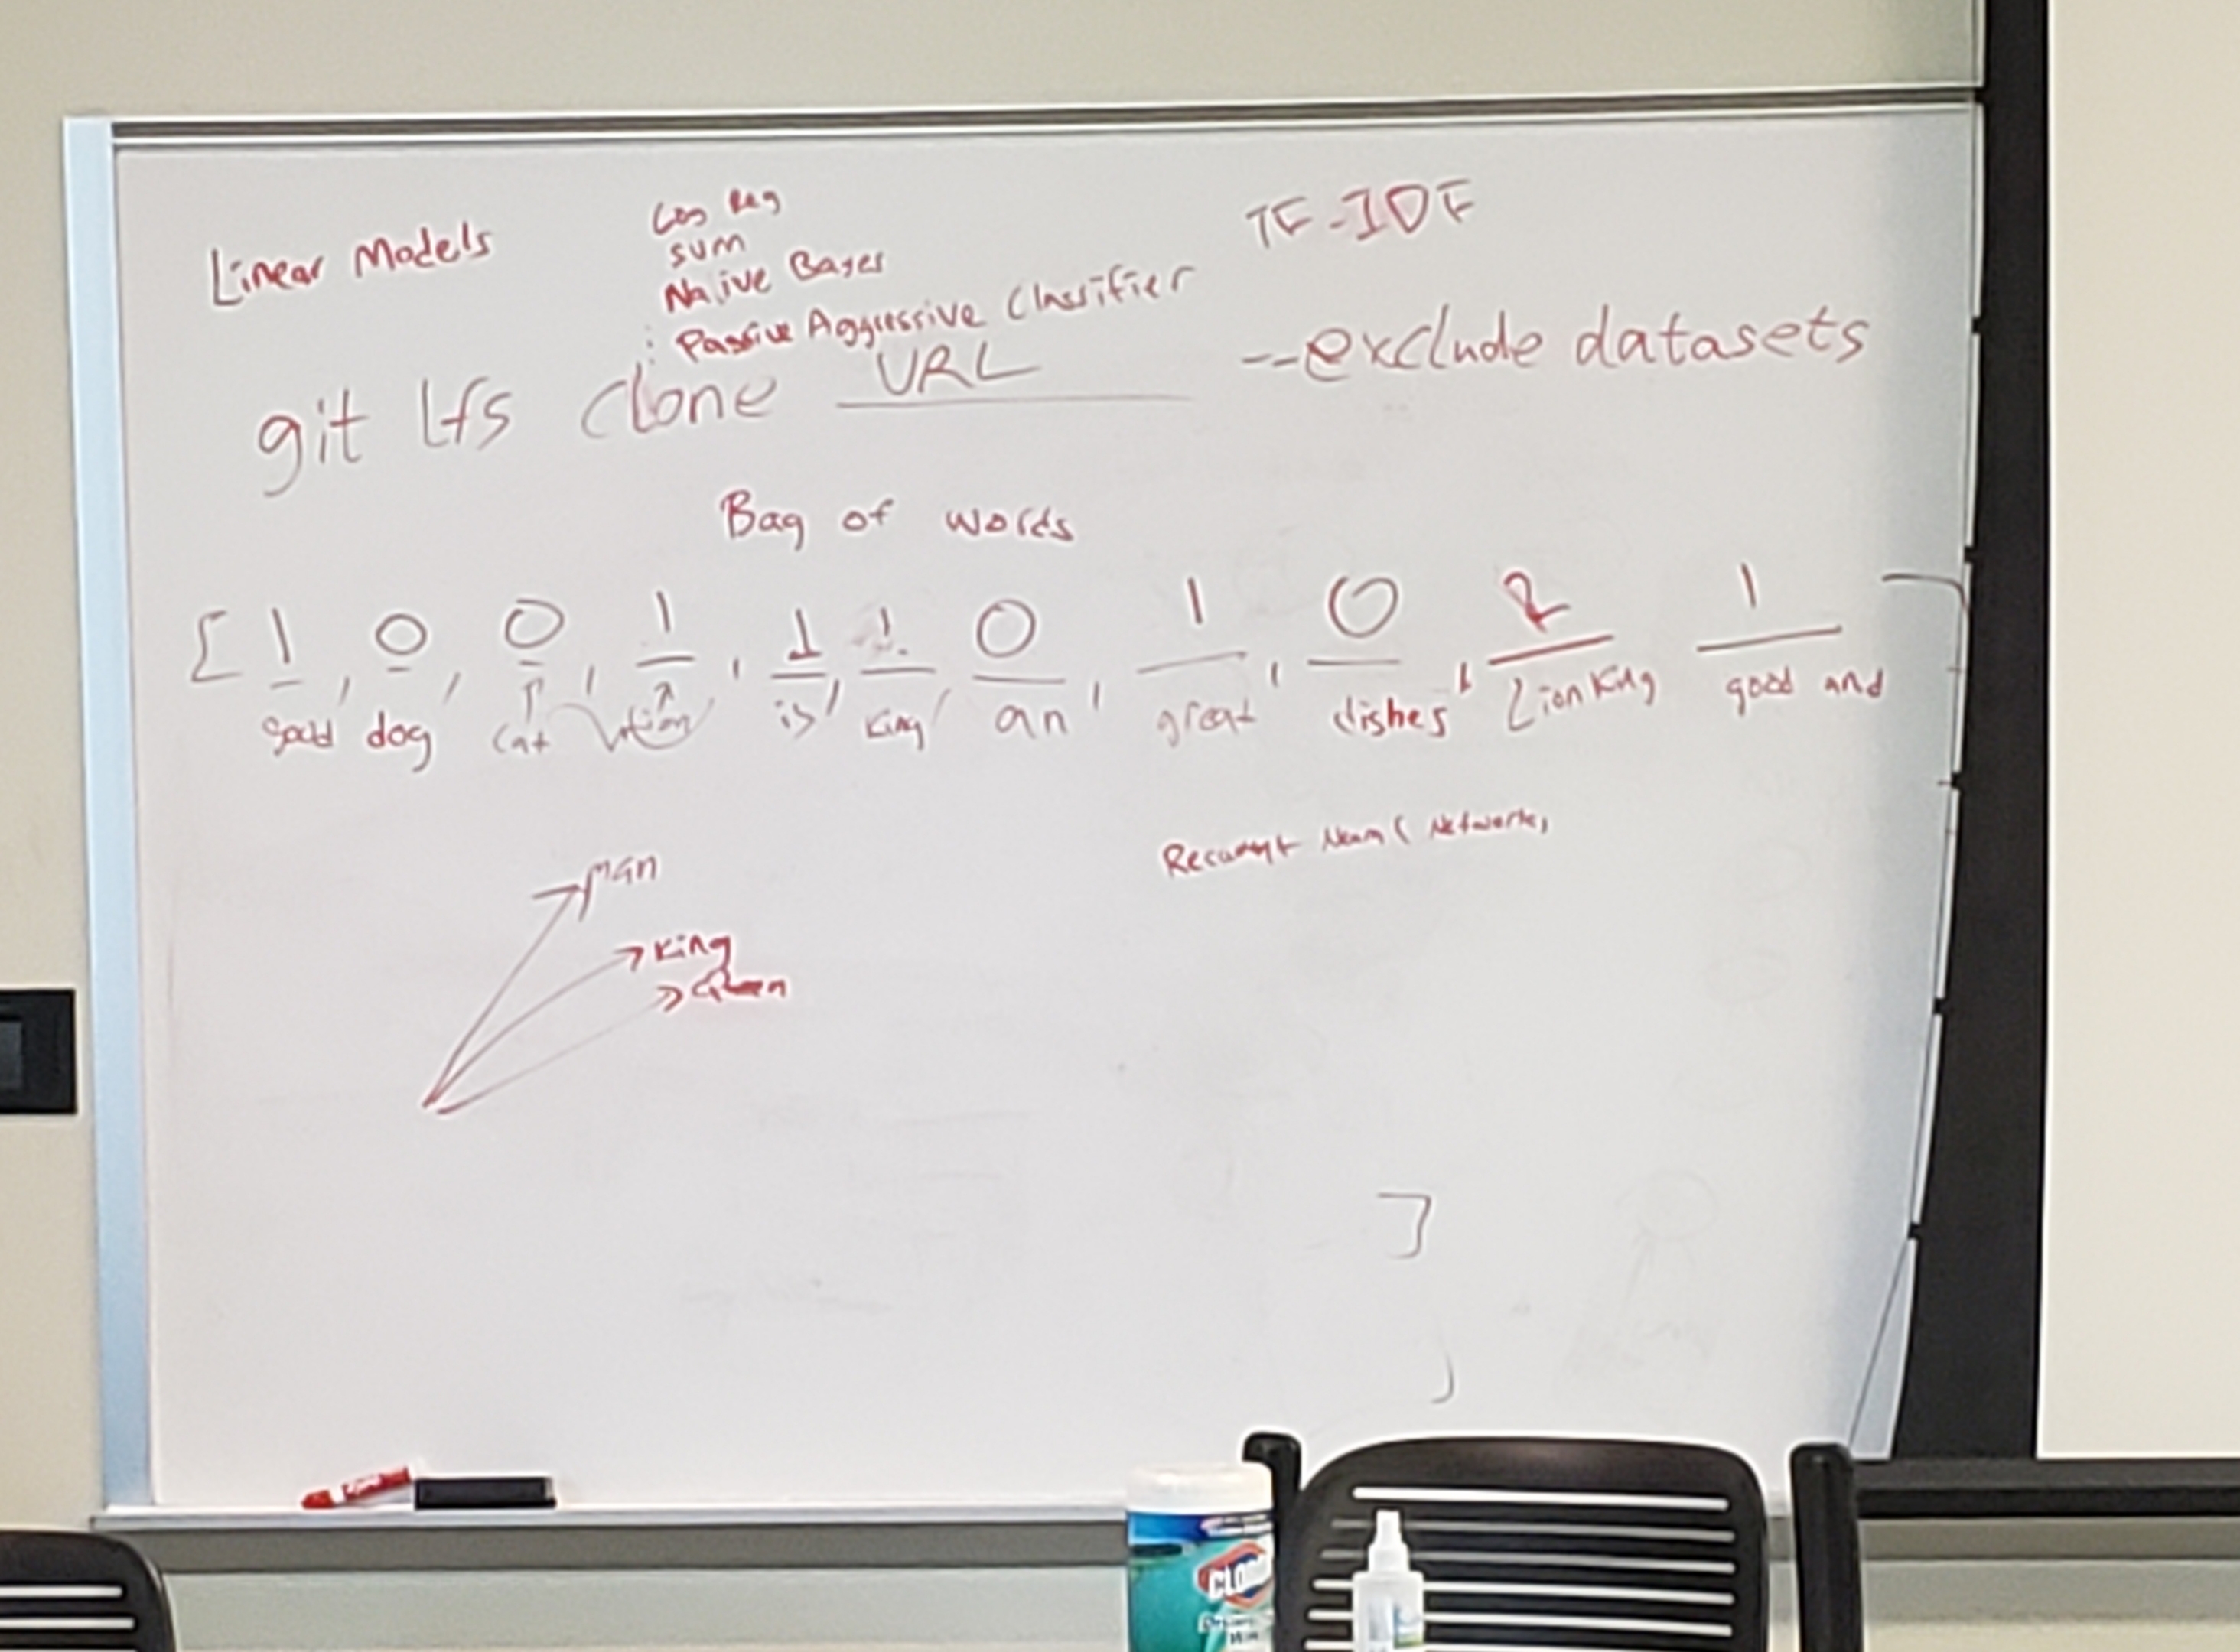 Linear Models
Log Reg
SVM
Naive Bayes
: Passive Aggressive Classifier
TF-IDF
git lfs clone URL --exclude datasets
Bag of words
[ 1, 0, 0, 1, 1, 1, 0, 1, 0, 2 1 ]
good dog cat is King an great dishes Lion King good and
man
King
Queen
Recurrent Neural Networks
]
CLOROX